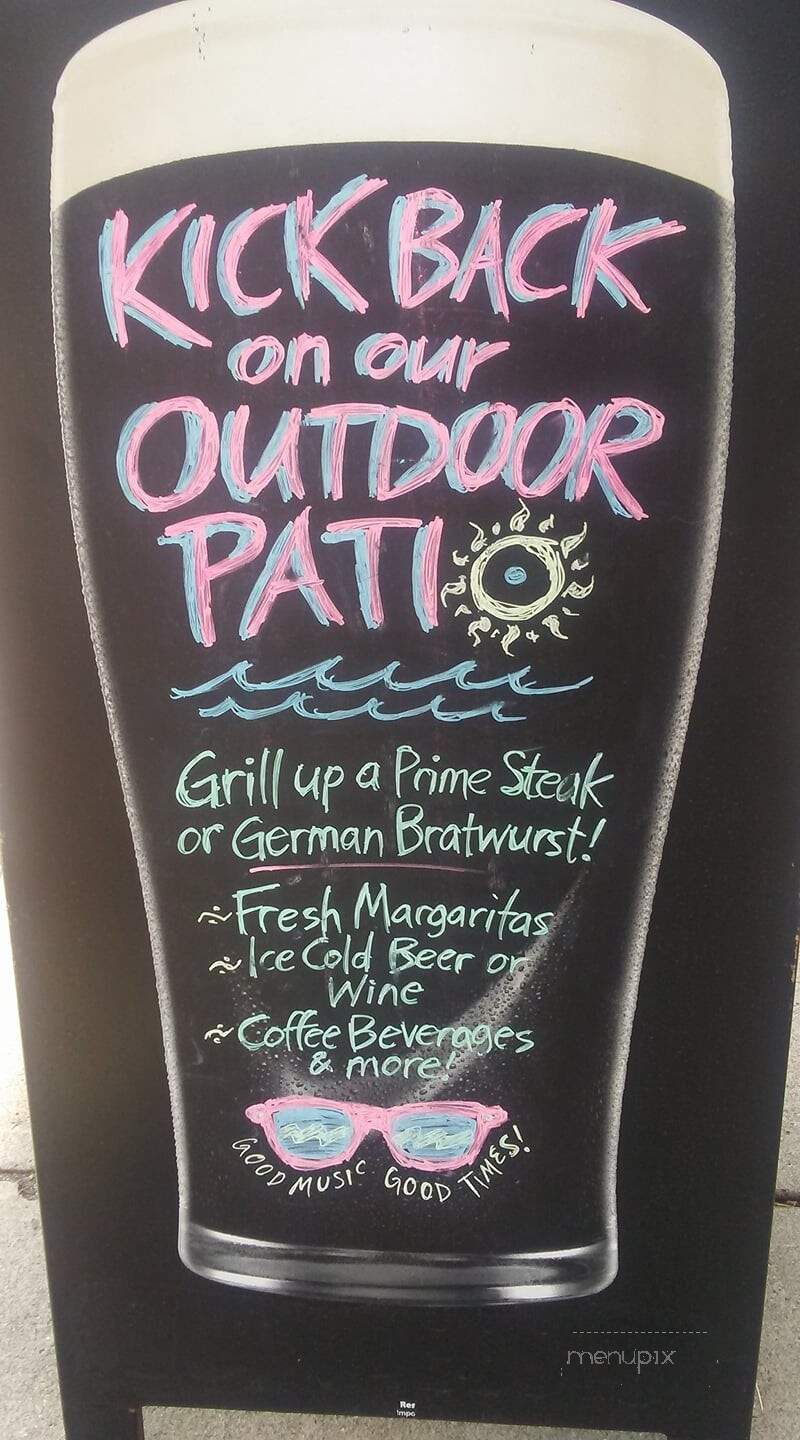 KICK BACK
on our
OUTDOOR
PATIO
Grill up a Prime Steak
or German Bratwurst!
~ Fresh Margaritas
~ Ice Cold Beer or
Wine
~ Coffee Beverages
& more!
GOOD MUSIC GOOD TIMES!
menupix